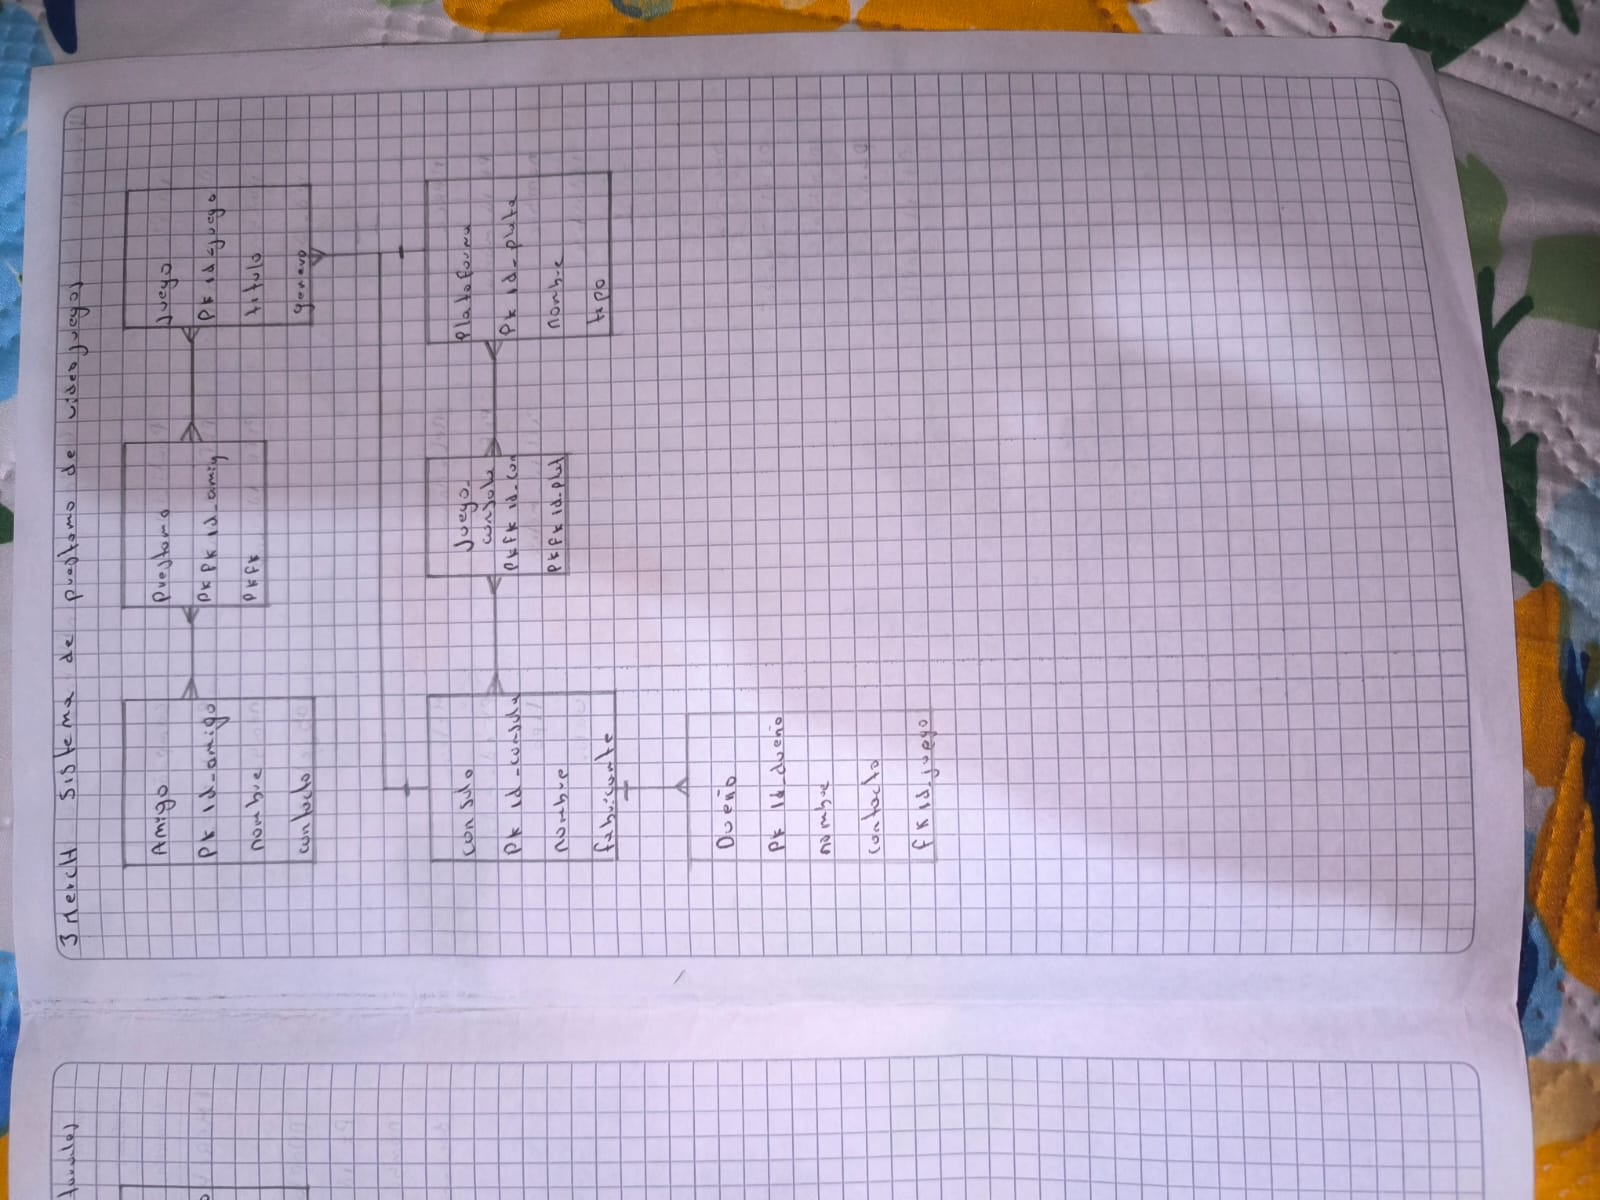 3 MerCH Sistema de prestamo de videojuegos
Amigo
PK id_amigo
nombre
contacto
prestamo
PK FK id_amig
PK FK
juego
PK id_juego
titulo
genero
consola
PK id_consola
nombre
fabricante
juego_
consola
PK FK id_con
PK FK id_plat
plataforma
PK id_plata
nombre
tipo
Dueño
PK id_dueño
nombre
contacto
FK id_juego